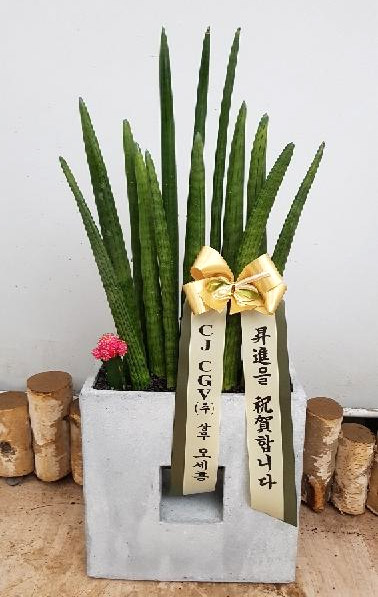 CJ CGV(주) 상무 오세흥
昇進을 祝賀합니다